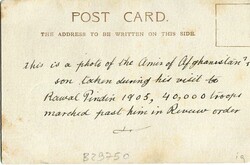 POST CARD.
THE ADDRESS TO BE WRITTEN ON THIS SIDE.
This is a photo of the Amir of Afghanistan's
son taken during his visit to
Rawal Pindi 1905, 40,000 troops
marched past him in Review order
829750